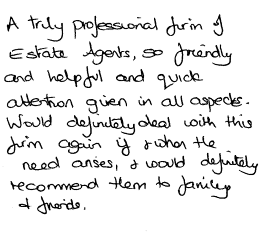 A truly professional firm of
Estate Agents, so friendly
and helpful and quick
attention given in all aspects.
Would definitely deal with this
firm again if & when the
need arises, & would definitely
recommend them to family
& friends.